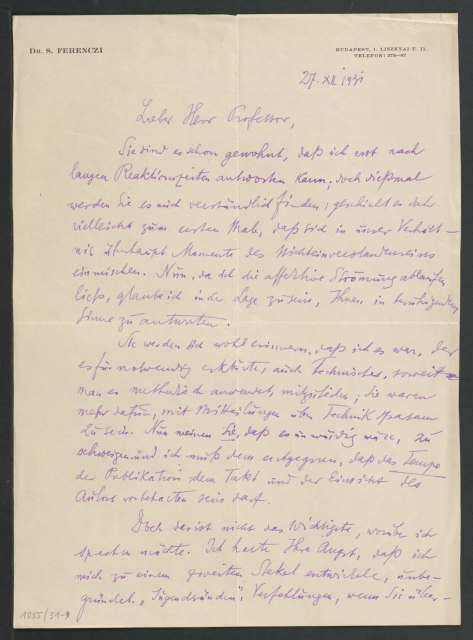 DR. S. FERENCZI
BUDAPEST, I. LISZNYAI U. 11.
TELEFON: 573-67
27. XII 1931
Lieber Herr Professor,
Sie sind es schon gewohnt, daß ich erst nach
langen Reaktionszeiten antworten kann; doch dießmal
werden Sie es auch verständlich finden; geschieht es doch
vielleicht zum ersten Male, daß sich in unser Verhält-
nis überhaupt Momente des Nichteinverstandenseins
einmischen. Nun, da ich die affektive Strömung ablaufen
ließ, glaube ich in der Lage zu sein, Ihnen in beruhigendem
Sinne zu antworten.
Sie werden sich wohl erinnern, daß ich es war, der
es für notwendig erklärte, auch Technisches, soweit
man es methodisch anwendet, mitzuteilen; Sie waren
mehr dafür, mit Mitteilungen über Technik sparsam
zu sein. Nun meinen Sie, daß es unwürdig wäre, zu
schweigen und ich muß dem entgegnen, daß das Tempo
der Publikation dem Takt und der Einsicht des
Autors vorbehalten sein darf.
Doch das ist nicht das Wichtigste, worüber ich
sprechen möchte. Ich halte Ihre Angst, daß ich
mich zu einem zweiten Stekel entwickele, unbe-
gründet. „Jugendsünden", Verfehlungen, wenn sie über-
1055/31-9